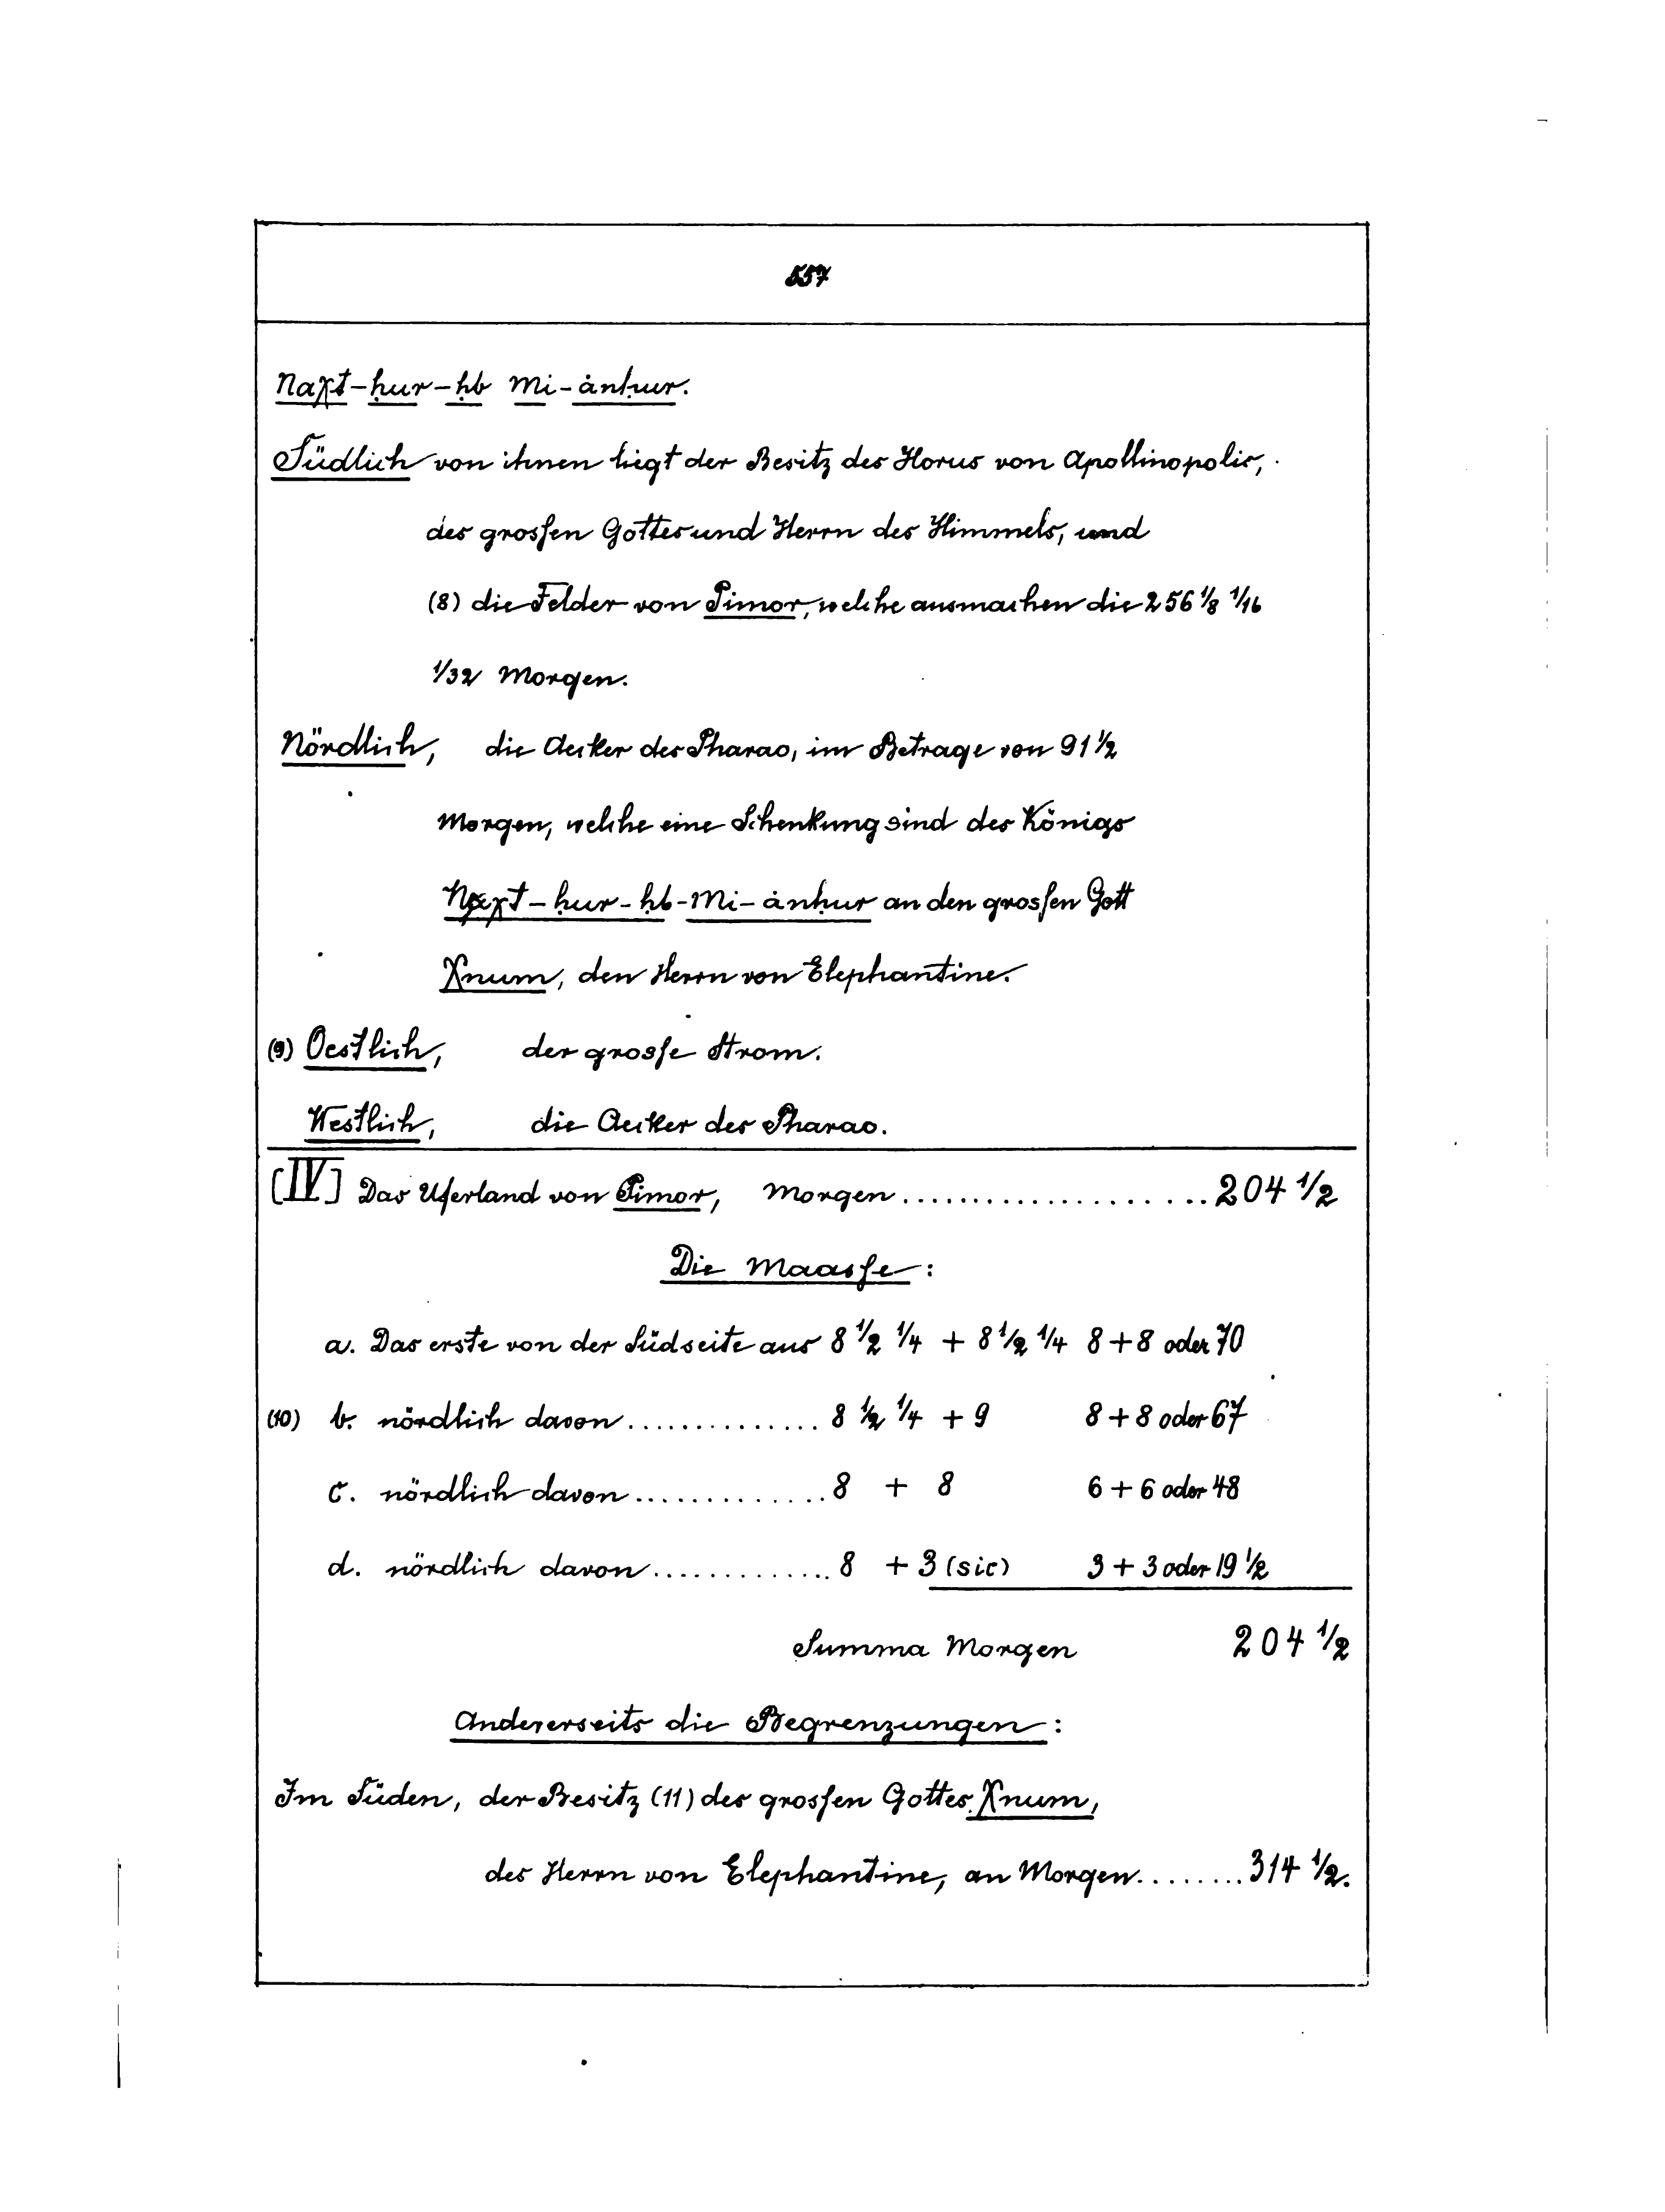 557
Naχt-ḥur-ḥb Mi-ànḥur.
Südlich von ihnen liegt der Besitz des Horus von Apollinopolis,
des grossen Gottes und Herrn des Himmels, und
(8) die Felder von Pimor, welche ausmachen die 256 1/8 1/16
1/32 Morgen.
Nördlich, die Aecker des Pharao, im Betrage von 91 1/2
Morgen, welche eine Schenkung sind des Königs
Naχt-ḥur-ḥb-Mi-ànḥur an den grossen Gott
Xnum, den Herrn von Elephantine.
(9) Oestlich, der grosse Strom.
Westlich, die Aecker des Pharao.
[IV] Das Uferland von Pimor, Morgen .................... 204 1/2
Die Maasse:
a. Das erste von der Südseite aus 8 1/2 1/4 + 8 1/2 1/4 8 + 8 oder 70
(10) b. nördlich davon .............. 8 1/2 1/4 + 9 8 + 8 oder 67
c. nördlich davon .............. 8 + 8 6 + 6 oder 48
d. nördlich davon ............. 8 + 3 (sic) 3 + 3 oder 19 1/2
Summa Morgen 204 1/2
Andererseits die Begrenzungen:
Im Süden, der Besitz (11) des grossen Gottes Xnum,
des Herrn von Elephantine, an Morgen ........ 314 1/2.